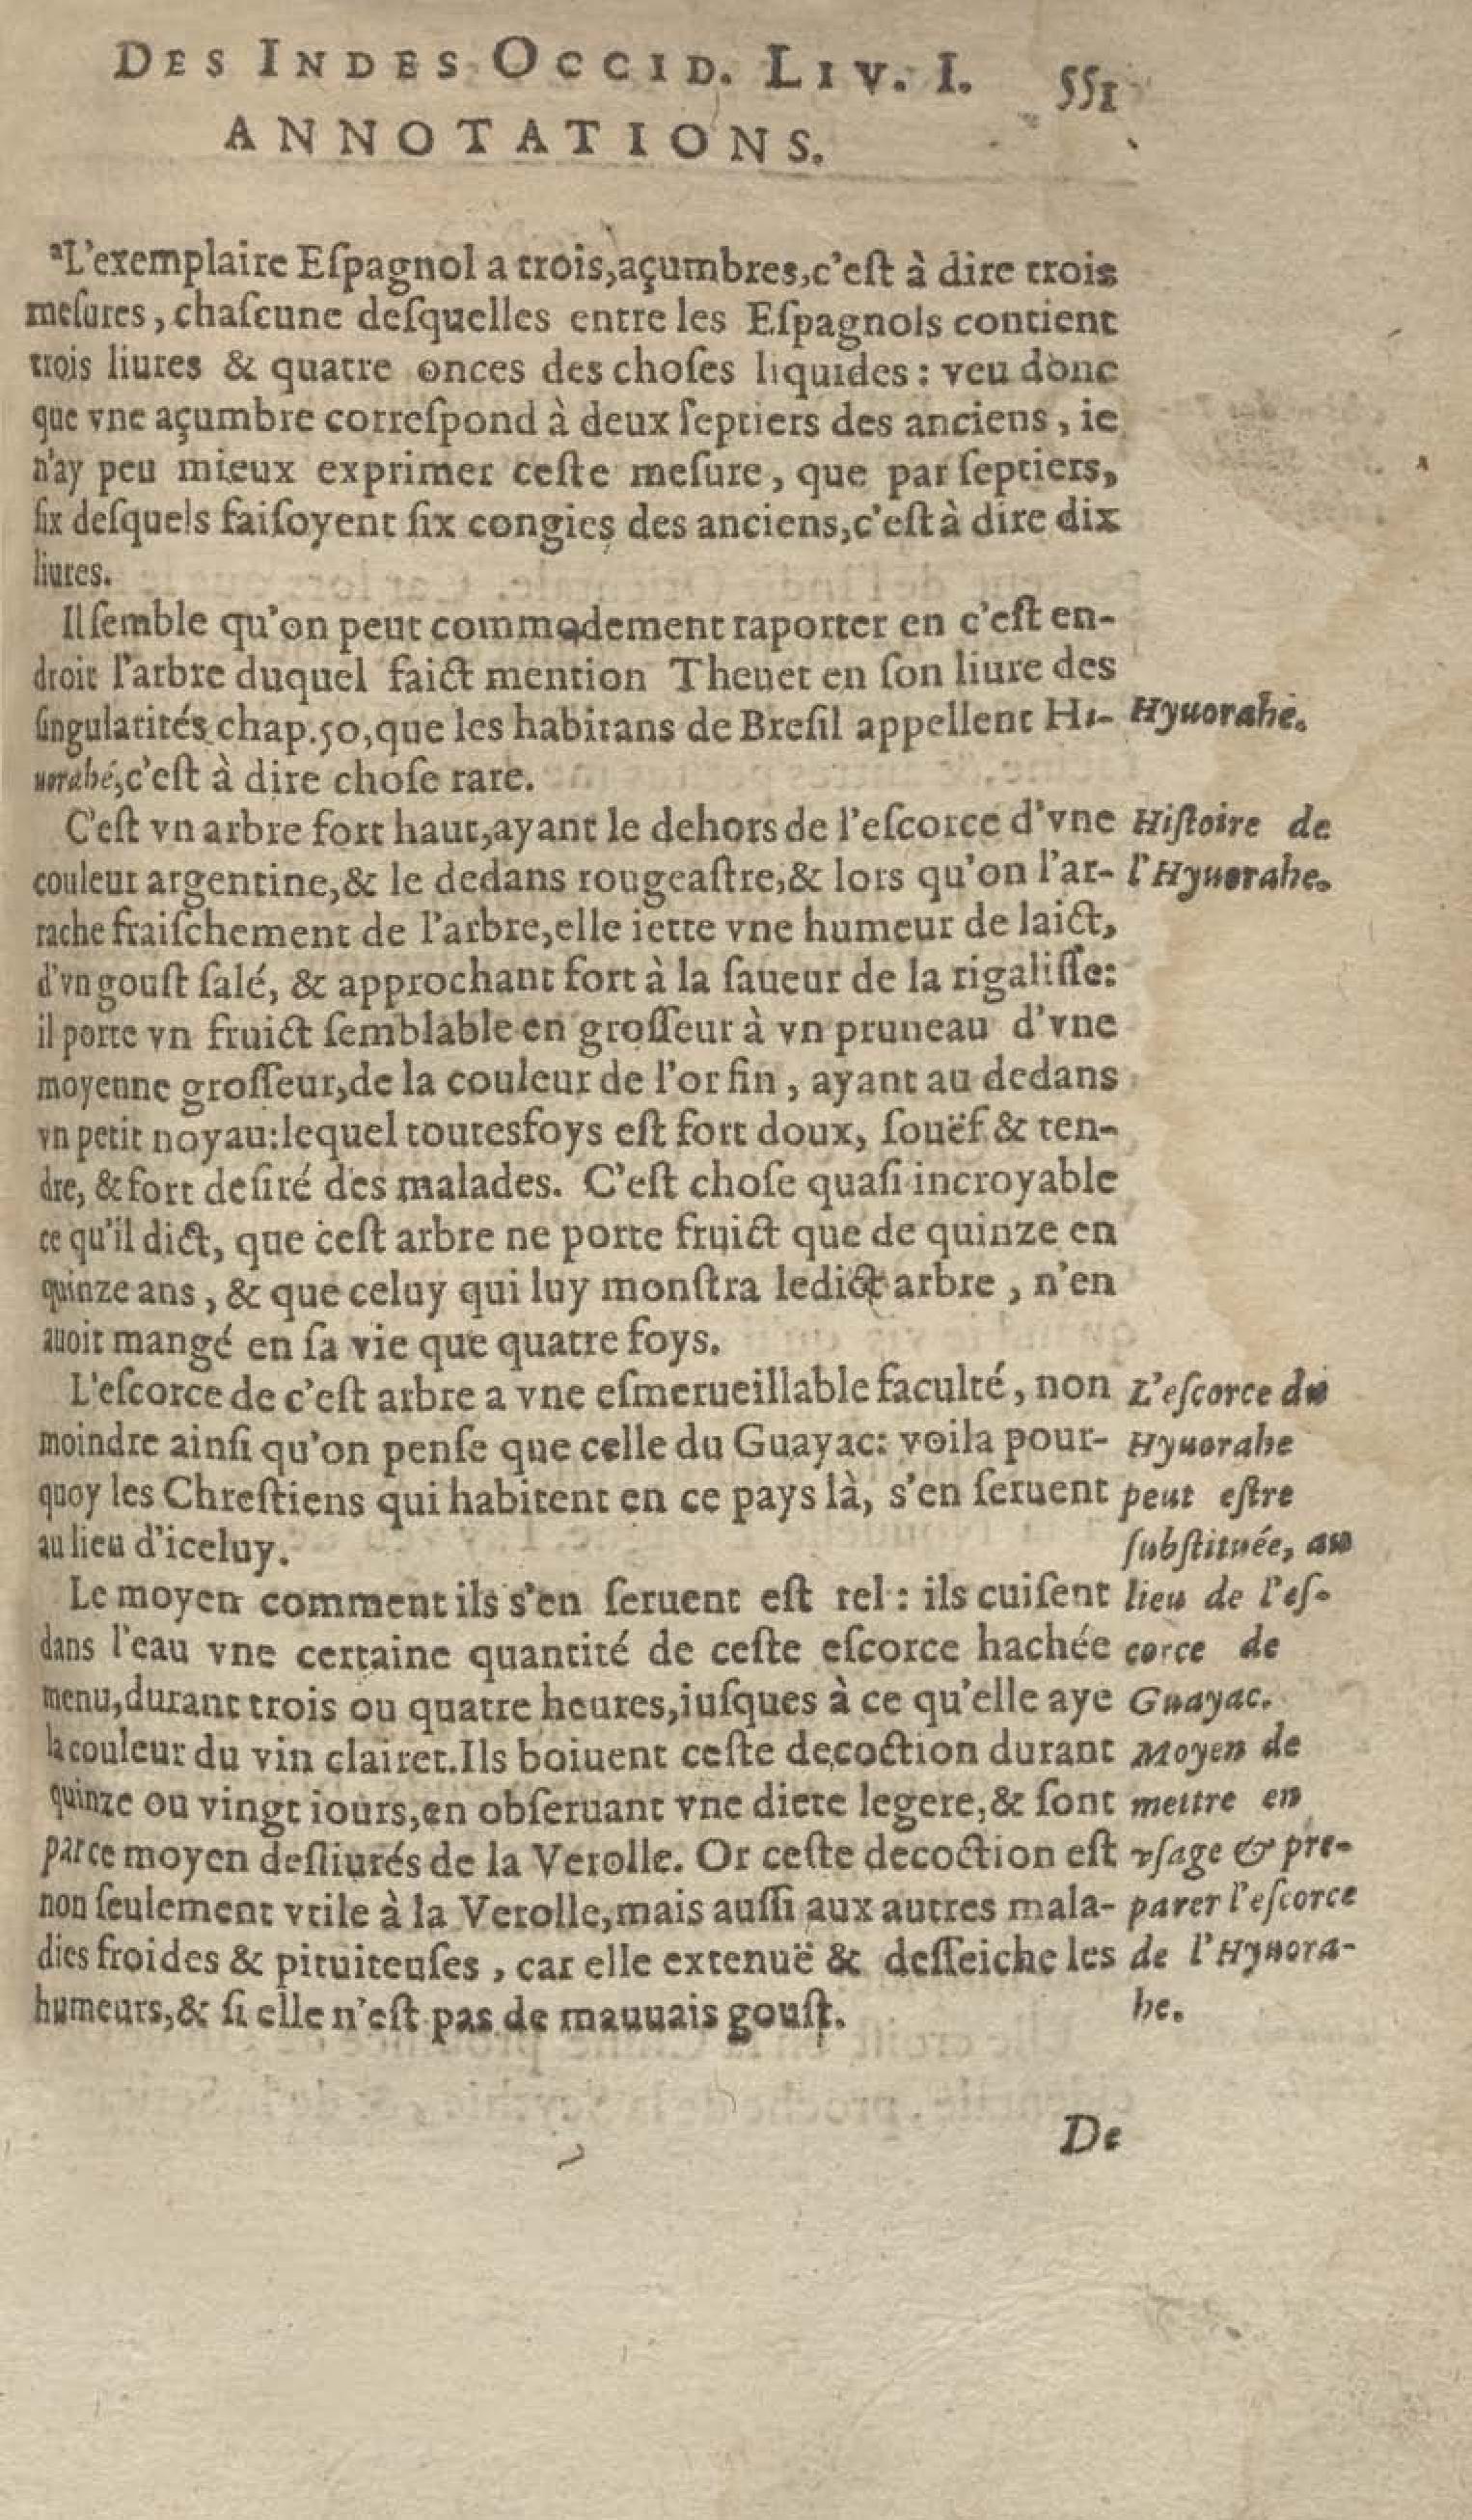 DES INDES OCCID. LIV. I. 551
ANNOTATIONS.
ªL'exemplaire Eſpagnol a trois, açumbres, c'eſt à dire trois
meſures, chaſcune deſquelles entre les Eſpagnols contient
trois liures & quatre onces des choſes liquides : veu donc
que vne açumbre correſpond à deux ſeptiers des anciens, ie
n'ay peu mieux exprimer ceſte meſure, que par ſeptiers,
ſix deſquels faiſoyent ſix congies des anciens, c'eſt à dire dix
liures.
Il ſemble qu'on peut commodement raporter en c'eſt en-
droit l'arbre duquel faict mention Theuet en ſon liure des
ſingularités chap. 50, que les habitans de Breſil appellent Hi-
uorahé, c'eſt à dire choſe rare.
Hyuorahe.
C'eſt vn arbre fort haut, ayant le dehors de l'eſcorce d'vne
couleur argentine, & le dedans rougeaſtre, & lors qu'on l'ar-
rache fraiſchement de l'arbre, elle iette vne humeur de laict,
d'vn gouſt ſalé, & approchant fort à la ſaueur de la rigaliſſe:
il porte vn fruict ſemblable en groſſeur à vn pruneau d'vne
moyenne groſſeur, de la couleur de l'or fin, ayant au dedans
vn petit noyau: lequel toutesfoys eſt fort doux, ſouëf & ten-
dre, & fort deſiré des malades. C'eſt choſe quaſi incroyable
ce qu'il dict, que ceſt arbre ne porte fruict que de quinze en
quinze ans, & que celuy qui luy monſtra ledict arbre, n'en
auoit mangé en ſa vie que quatre foys.
Hiſtoire de
l'Hyuorahe.
L'eſcorce de c'eſt arbre a vne eſmerueillable faculté, non
moindre ainſi qu'on penſe que celle du Guayac: voila pour-
quoy les Chreſtiens qui habitent en ce pays là, s'en ſeruent
au lieu d'iceluy.
Le moyen comment ils s'en ſeruent eſt tel : ils cuiſent
dans l'eau vne certaine quantité de ceſte eſcorce hachée
menu, durant trois ou quatre heures, iuſques à ce qu'elle aye
la couleur du vin clairet. Ils boiuent ceſte decoction durant
quinze ou vingt iours, en obſeruant vne diete legere, & ſont
par ce moyen deſliurés de la Verolle. Or ceſte decoction eſt
non ſeulement vtile à la Verolle, mais auſſi aux autres mala-
dies froides & pituiteuſes, car elle extenuë & deſſeiche les
humeurs, & ſi elle n'eſt pas de mauuais gouſt.
L'eſcorce du
Hyuorahe
peut eſtre
ſubſtituée, au
lieu de l'eſ-
corce de
Guayac.
Moyen de
mettre en
vſage & pre-
parer l'eſcorce
de l'Hyuora-
he.
De